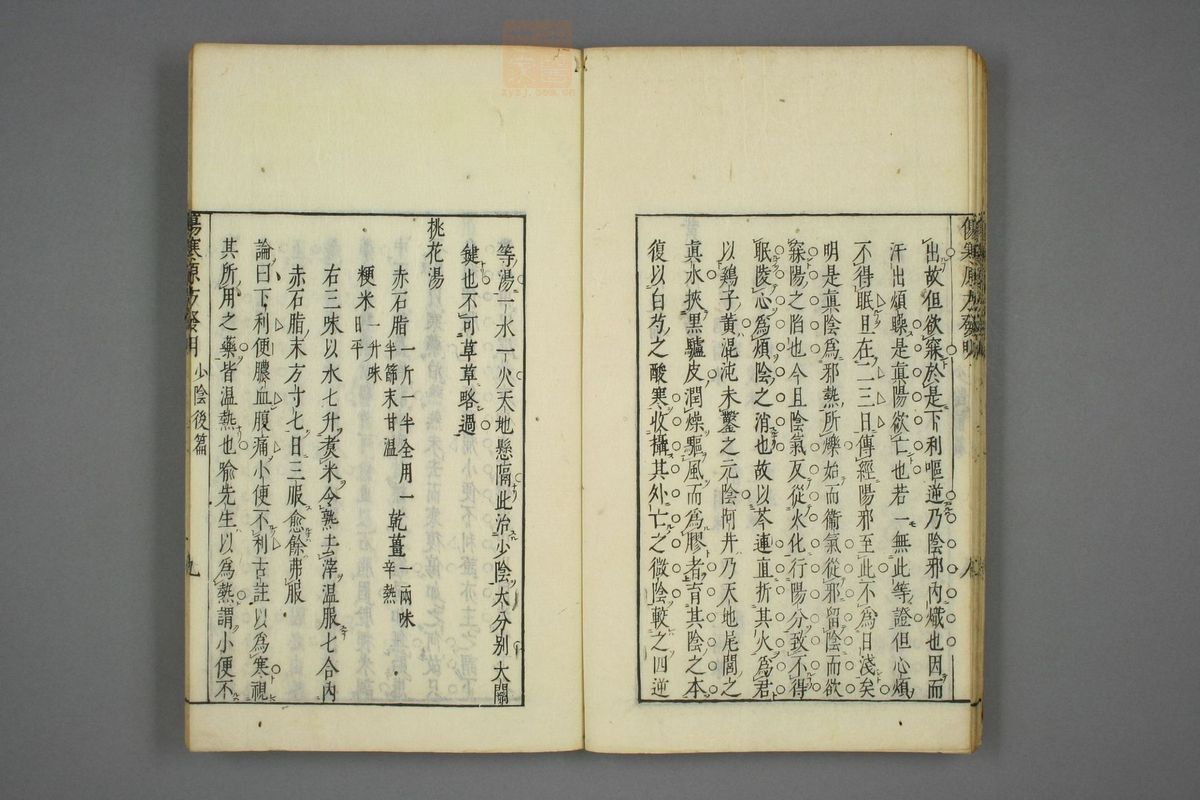 出故但欲寐於是下利嘔逆乃陰邪内熾也因而
汗出煩躁是真陽欲亡也若一無此等證但心煩
不得眠且在二三日傳經陽邪至此不為日淺矣
明是真陰為邪熱所爍始而衛氣從邪留陰而欲
寐陽之陷也今且陰氣反從火化行陽分致不得
眠陵心為煩陰之消也故以芩連直折其火為君
以鷄子黄混沌未鑿之元陰阿井乃天地尾閭之
真水挾黒驢皮潤燥驅風而為膠者育其陰之本
復以白芍之酸寒收攝其外亡之微陰較之四逆
等湯一水一火天地懸隔此治少陰大分別大關
鍵也不可草草略過
桃花湯
赤石脂一斤一半全用一半篩末甘温
乾薑一兩味辛熱
粳米一升味甘平
右三味以水七升煮米令熟去滓温服七合内
赤石脂末方寸七日三服愈餘弗服
論曰下利便膿血腹痛小便不利古註以為寒視
其所用之藥皆温熱也喻先生以為熱謂小便不
傷寒原方發明
少陰後篇
九